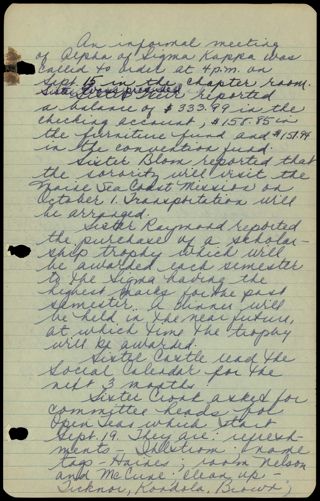 An informal meeting
of Alpha of Sigma Kappa was
called to order at 4 p.m. on
Sept. 15 in the chapter room.
Sister presided
Sister reported
a balance of $333.99 in the
checking account, $155.85 in
the furniture fund and $151.94
in the convention fund.
Sister Blom reported that
the sorority will visit the
Maine Sea Coast Mission on
October 1. Transportation will
be arranged.
Sister Raymond reported
the purchase of a scholar-
ship trophy which will
be awarded each semester
to the Sigma having the
highest marks for the past
semester. A dinner will
be held in the near future,
at which time the trophy
will be awarded.
Sister Castle read the
Social Calendar for the
next 3 months.
Sister Cronk asked for
committee heads for
Open Teas which start
Sept. 19. They are: refresh-
ments - name
tags - Haines, room Nelson
and McCune clean up -
Ticknor, Brown,